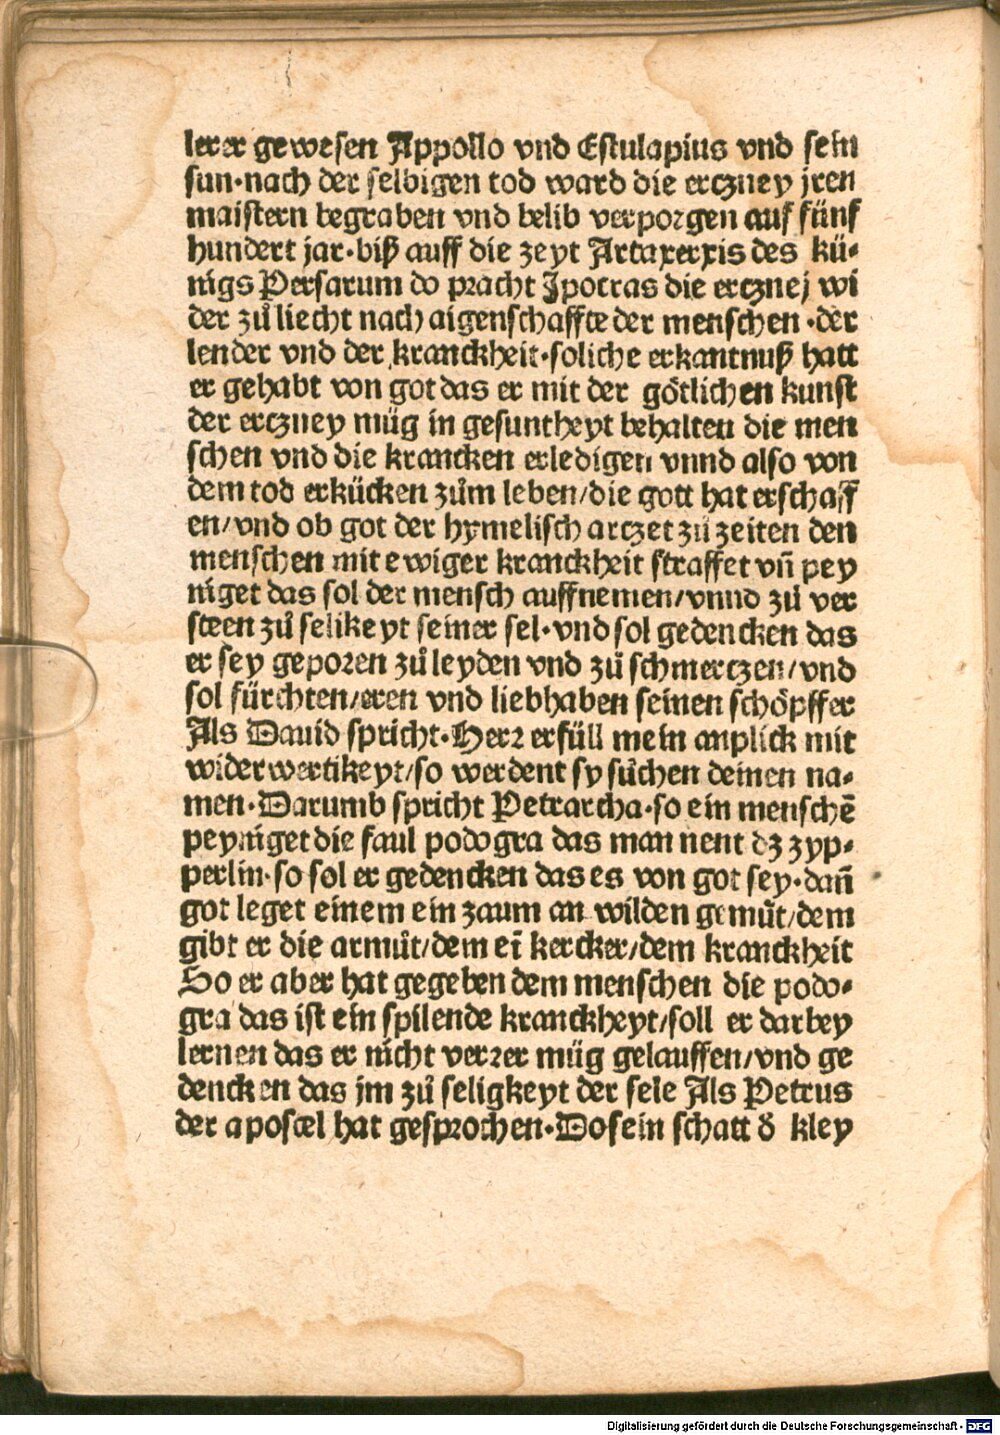 lerer gewesen Appollo vnd Estulapius vnd sein
sun·nach der selbigen tod ward die erczney jren
maistern begraben vnd belib verporgen auf fünf
hundert jar·biß auff die zeyt Artaxerxis des kü⸗
nigs Persarum do pracht Ipocras die ercznej wi
der zů liecht nach aigenschaffte der menschen·der
lender vnd der kranckheit·soliche erkantnuß hatt
er gehabt von got das er mit der götlichen kunst
der erczney müg in gesuntheyt behalten die men
schen vnd die krancken erledigen vnnd also von
dem tod erkücken zům leben/die gott hat erschaff
en/vnd ob got der hymelisch arczet zů zeiten den
menschen mit ewiger kranckheit straffet vñ pey
niget das sol der mensch auffnemen/vnnd zů ver
steen zů selikeyt seiner sel·vnd sol gedencken das
er sey geporen zů leyden vnd zů schmerczen/vnd
sol fürchten/eren vnd liebhaben seinen schöpffer
Als Dauid spricht·Herr erfüll mein anplick mit
widerwertikeyt/so werdent sy sůchen deinen na⸗
men·Darumb spricht Petrarcha·so ein menschē
peyniget die faul podogra das man nent dz zyp⸗
perlin·so sol er gedencken das es von got sey·dañ
got leget einem ein zaum an wilden gemůt/dem
gibt er die armůt/dem eī kercker/dem kranckheit
So er aber hat gegeben dem menschen die podo⸗
gra das ist ein spilende kranckheyt/soll er darbey
lernen das er nicht verrer müg gelauffen/vnd ge
dencken das jm zů seligkeyt der sele Als Petrus
der apostel hat gesprochen·Do sein schatt ď kley
Digitalisierung gefördert durch die Deutsche Forschungsgemeinschaft - DFG